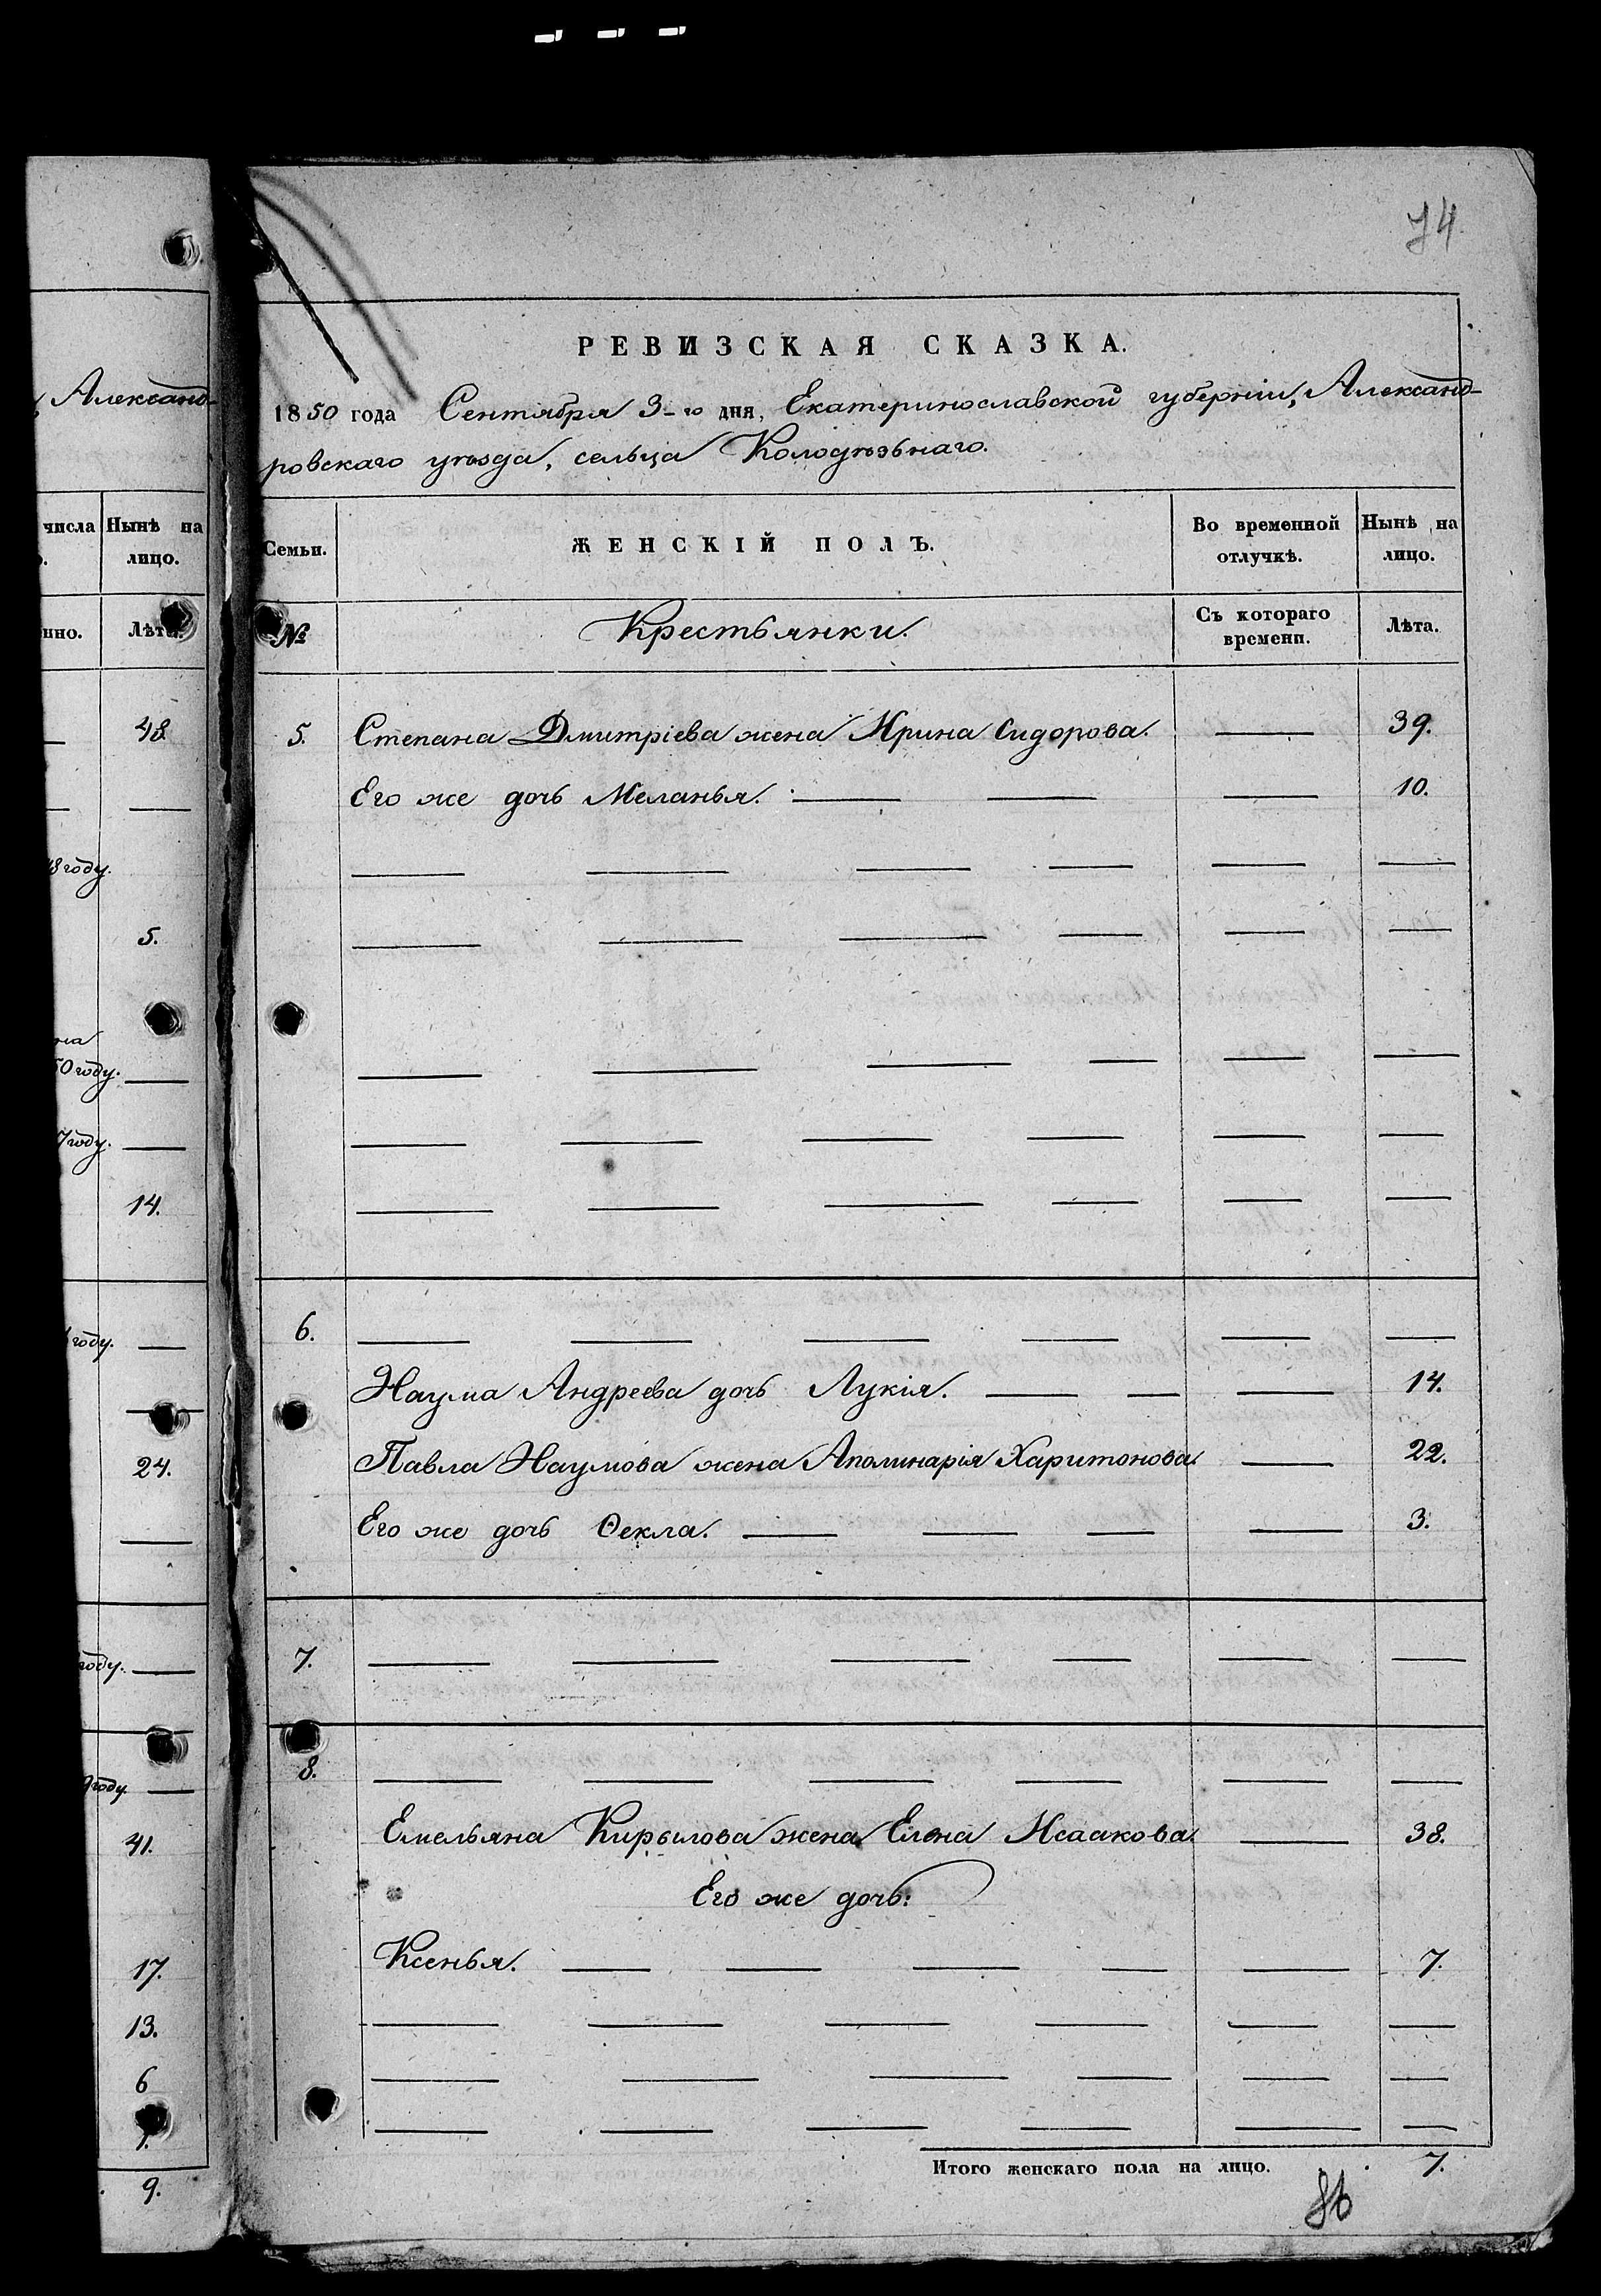 74
РЕВИЗСКАЯ СКАЗКА.
Александ-
1850 года Сентября 3-го дня, Екатеринославской губерніи, Александ-
ровскаго уѣзда, сельца Колодѣзьнаго.
числа Нынѣ на лицо.
Семьи. ЖЕНСКІЙ ПОЛЪ. Во временной отлучкѣ. Нынѣ на лицо.
нно. Лѣта.
№ Крестьянки. Съ котораго времени. Лѣта.
48.
5. Степана Дмитріева жена Ирина Сидорова. — 39.
Его же дочь Меланья. — — — 10.
8 году.
5.
на
50 году.
7 году.
14.
6. — — — — — —
году.
Наума Андреева дочь Лукія. — — — 14.
Павла Наумова жена Аполинарія Харитонова. — 22.
24.
Его же дочь Ѳекла. — — — — 3.
7. — — — — — —
году.
8. — — — — — —
9 году.
Емельяна Кирылова жена Елена Исаакова. — 38.
41.
Его же дочь:
Ксенья. — — — — — 7.
17.
13.
6
Итого женскаго пола на лицо. 7.
9.